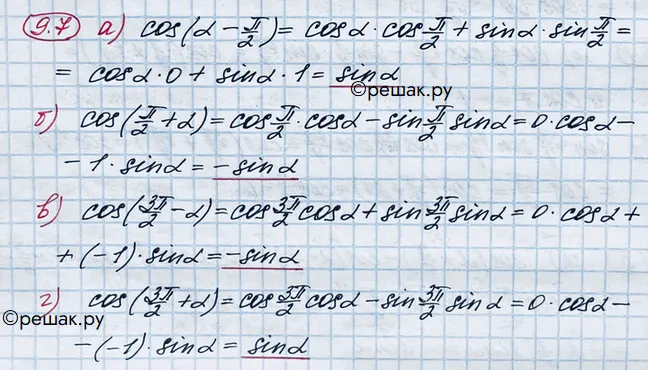 9.7 а) cos(α − π/2) = cosα · cos π/2 + sinα · sin π/2 =
= cosα · 0 + sinα · 1 = sinα
©решак.ру
б) cos(π/2 + α) = cos π/2 · cosα − sin π/2 sinα = 0 · cosα −
− 1 · sinα = − sinα
в) cos(3π/2 − α) = cos 3π/2 cosα + sin 3π/2 sinα = 0 · cosα +
+ (−1) · sinα = − sinα
г) cos(3π/2 + α) = cos 3π/2 cosα − sin 3π/2 sinα = 0 · cosα −
©решак.ру
− (−1) · sinα = sinα